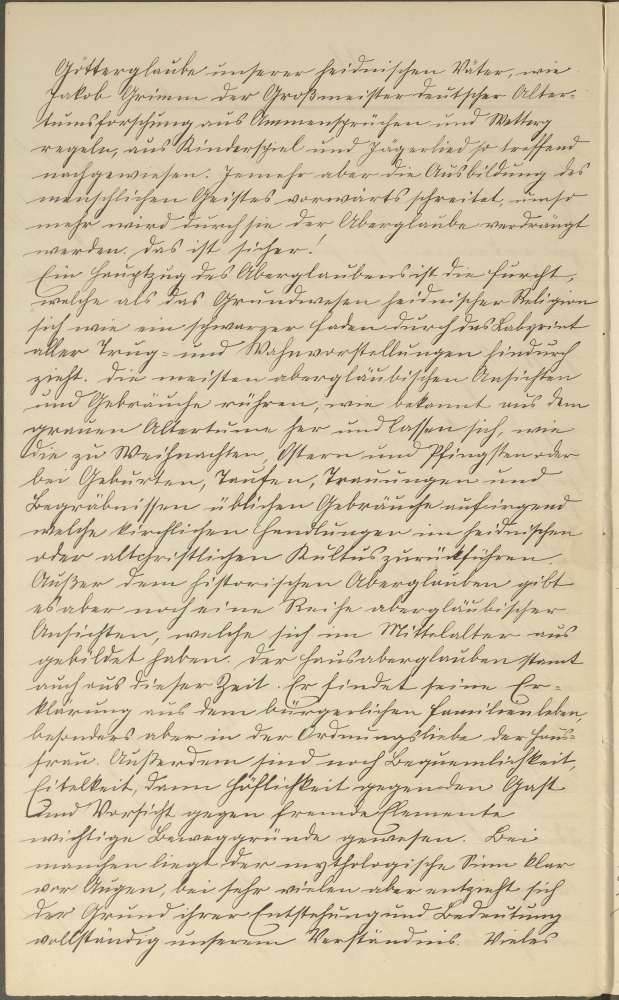 Götterglaube unserer heidnischen Väter, wie
Jakob Grimm der Großmeister deutscher Alter-
tumsforschung aus Ammensprüchen und Wetterg
regeln, aus Kinderspiel und Jägerlied so treffend
nachgewiesen. Jemehr aber die Ausbildung des
menschlichen Geistes vorwärts schreitet, umso
mehr wird durch sie der Aberglaube verdrängt
werden. das ist sicher!
Ein Hauptzug des Aberglaubens ist die Furcht,
welche als das Grundwesen heidnischer Religion
sich wie ein schwarzer Faden durch das Labyrint
aller Trug- und Wahnvorstellungen hindurch
zieht. die meisten abergläubischen Ansichten
und Gebräuche rühren, wie bekannt aus dem
grauen Altertume her und lassen sich, wie
die zu Weihnachten, Ostern und Pfingsten oder
bei Geburten, Taufen, Trauungen und
Begräbnissen üblichen Gebräuche auf irgend
welche kirchlichen Handlungen im heidnischen
oder altchristlichen Kultus zurückführen.
Außer dem historischen Aberglauben gibt
es aber noch eine Reihe abergläubischer
Ansichten, welche sich im Mittelalter aus
gebildet haben. der Hausaberglauben stamt
auch aus dieser Zeit. Er findet seine Er-
klärung aus dem bürgerlichen Familienleben,
besonders aber in der Ordnungsliebe der Haus-
frau. Außerdem sind noch Bequemlichkeit,
Eitelkeit, dann Höflichkeit gegen den Gast
und Vorsicht gegen fremde Elemente
wichtige Beweggründe gewesen. Bei
manchen liegt der mythologische Sinn klar
vor Augen, bei sehr vielen aber entzieht sich
der Grund ihrer Entstehung und Bedeutung
vollständig unserem Verständnis. Vieles